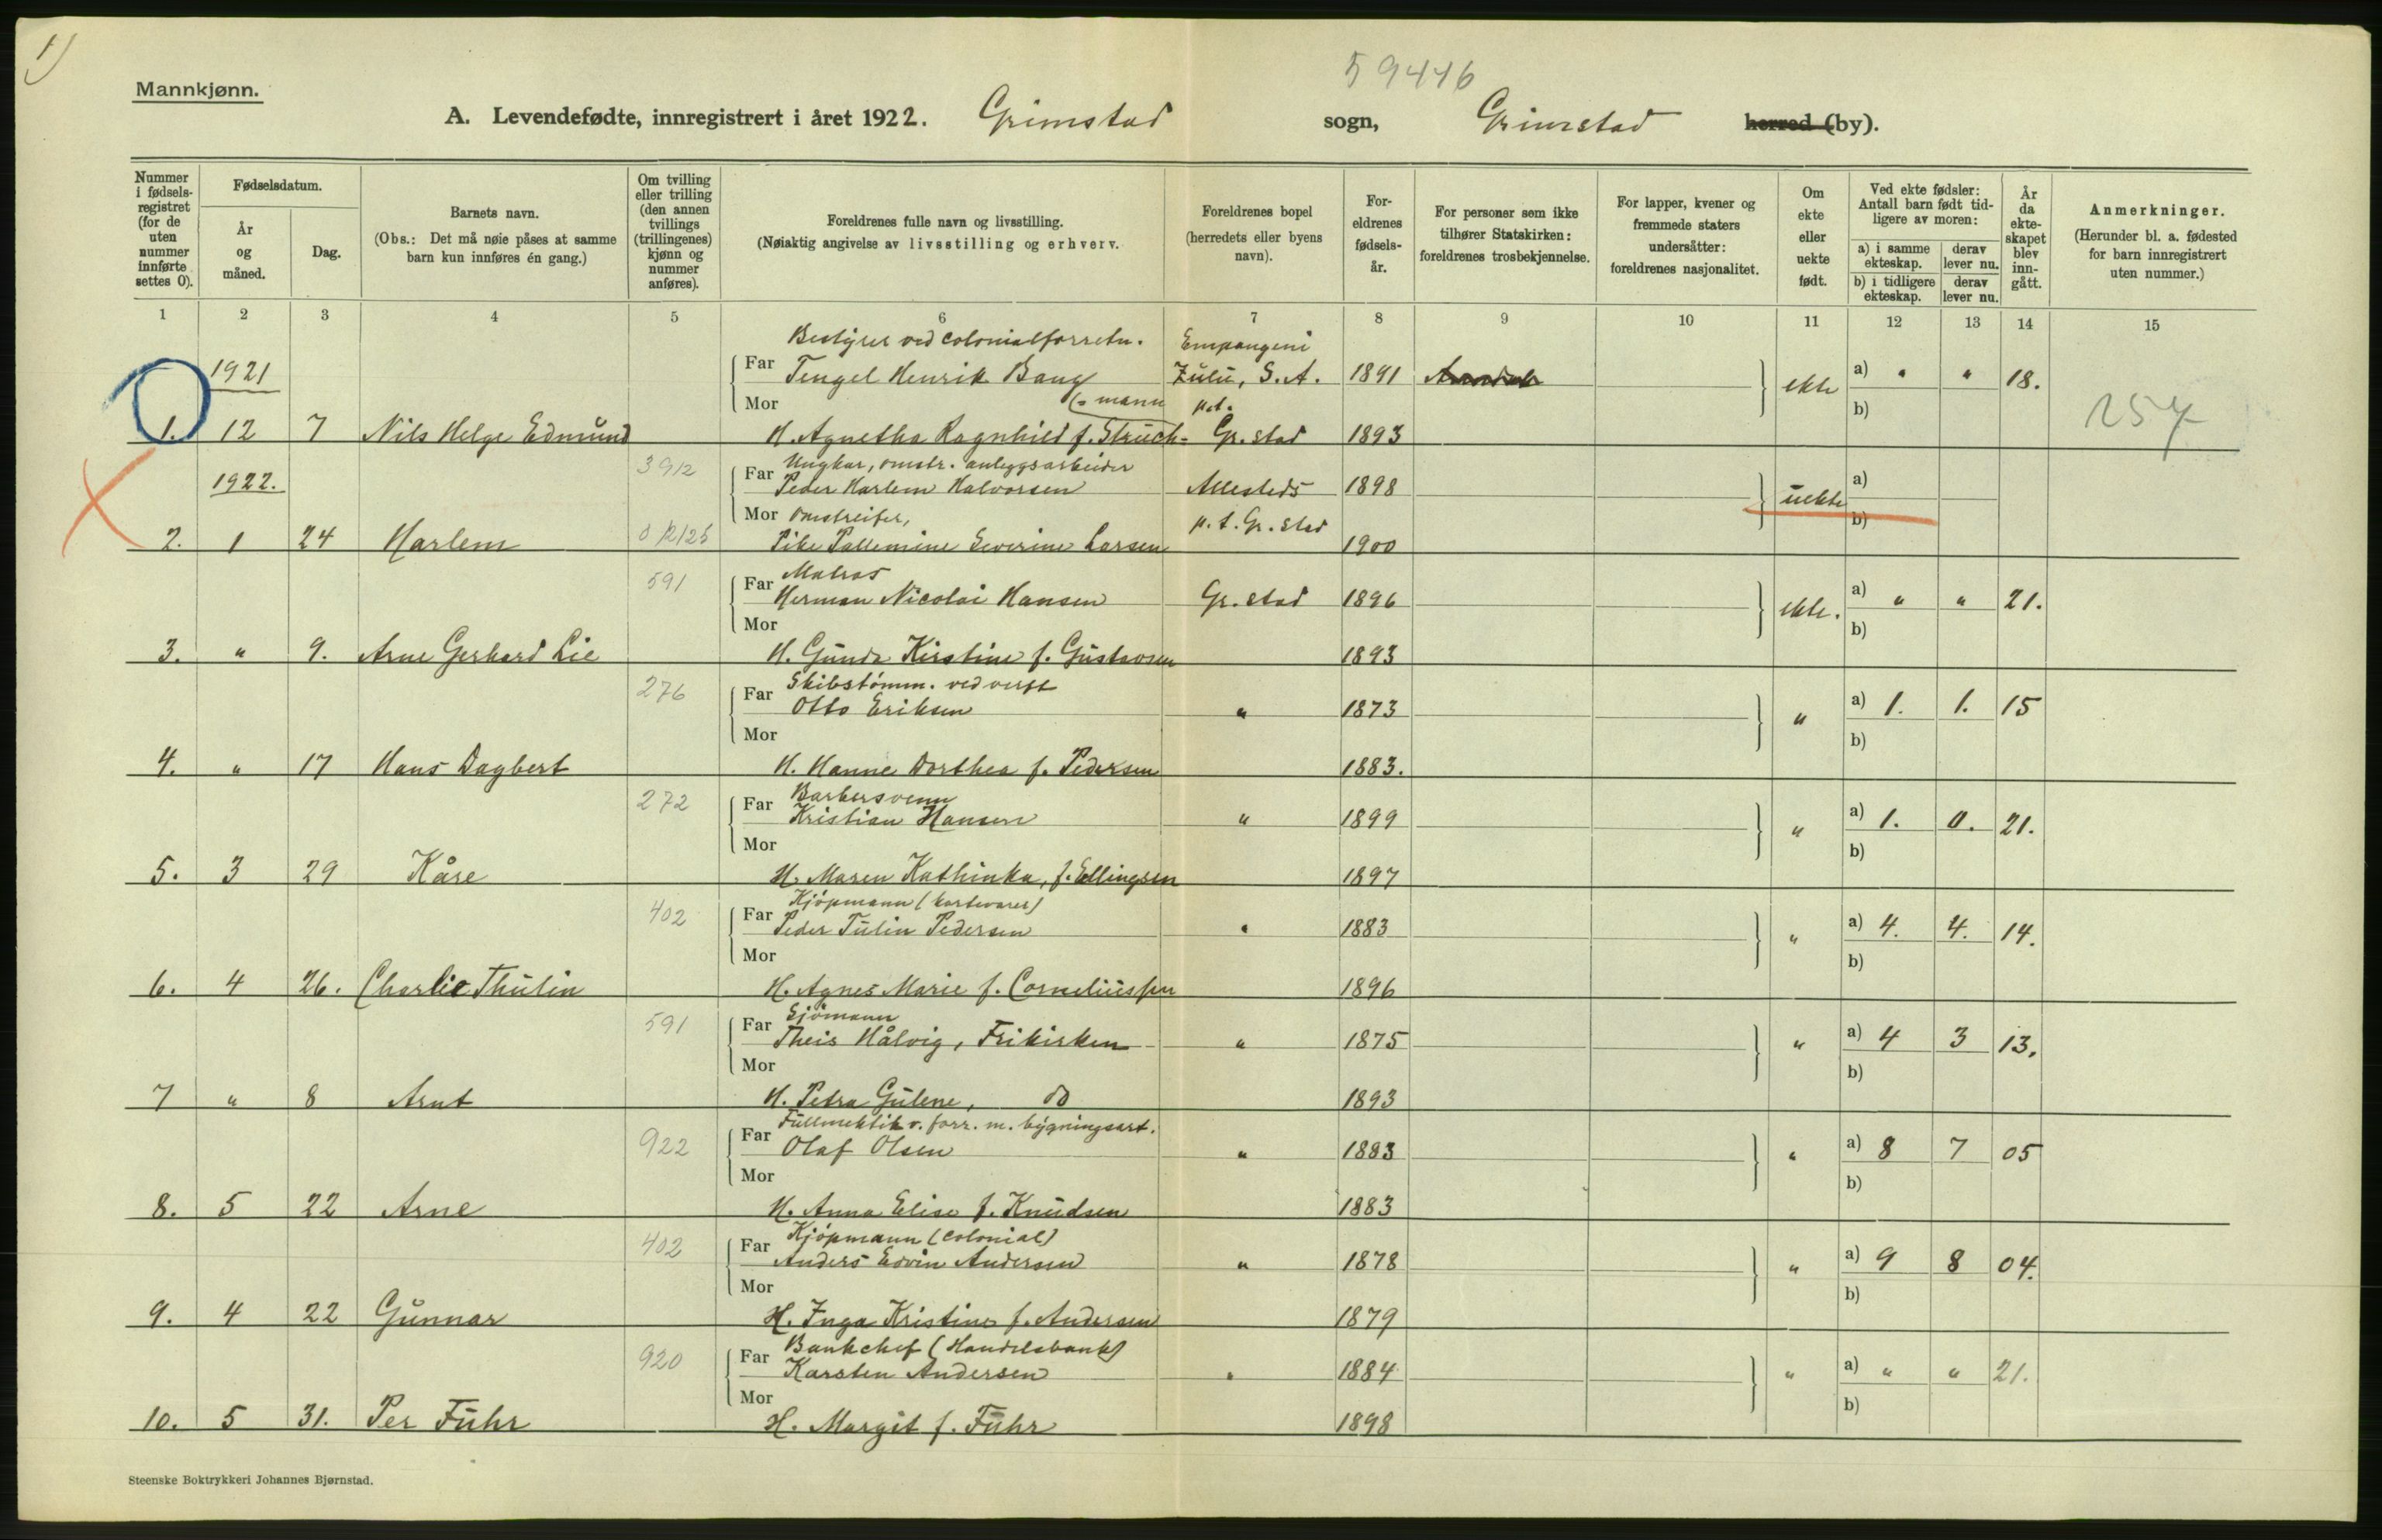 1)
Mannkjønn.
59446
A. Levendefødte, innregistrert i året 1922. Grimstad sogn, Grimstad herred (by).
Nummer i fødselsregistret (for de uten nummer innførte settes 0).
Fødselsdatum.
År og måned.
Dag.
Barnets navn.
(Obs.: Det må nøie påses at samme barn kun innføres én gang.)
Om tvilling eller trilling (den annen tvillings (trillingenes) kjønn og nummer anføres).
Foreldrenes fulle navn og livsstilling.
(Nøiaktig angivelse av livsstilling og erhverv.
Foreldrenes bopel (herredets eller byens navn).
Foreldrenes fødselsår.
For personer som ikke tilhører Statskirken: foreldrenes trosbekjennelse.
For lapper, kvener og fremmede staters undersåtter: foreldrenes nasjonalitet.
Om ekte eller uekte født.
Ved ekte fødsler: Antall barn født tidligere av moren:
a) i samme ekteskap. derav lever nu.
b) i tidligere ekteskap. derav lever nu.
År da ekteskapet blev inngått.
Anmerkninger.
(Herunder bl. a. fødested for barn innregistrert uten nummer.)
1 2 3 4 5 6 7 8 9 10 11 12 13 14 15
Bestyrer ved colonialforretn. Empangeni
1921 Far Tengel Henrik Bang Zulu, S. A. 1891 ekte a) " " 18.
Mor (=mann p.t. b) 257
1. 12 7 Nils Helge Edmund H. Agnetha Ragnhild f. Struck- Gr.stad 1893
3912 Ungkar, omstr. anleggsarbeider
1922. Far Peder Harlem Halvorsen Allesteds 1898 uekte a)
Mor Omstreifer, p. t. Gr. stad b)
2. 1 24 Harlem Pike Pallemine Severine Larsen 1900
591 Far Matros
Herman Nicolai Hansen Gr. stad 1896 ekte. a) " " 21.
Mor b)
3. " 9. Arne Gerhard Lie H. Gunda Kirstine f. Gustavsen 1893
276 Far Skibstømm. ved verft
Otto Eriksen " 1873 " a) 1. 1. 15
Mor b)
4. " 17 Hans Dagbert H. Hanne Dorthea f. Pedersen 1883.
272 Far Barbersvenn
Kristian Hansen " 1899 " a) 1. 0. 21.
Mor b)
5. 3 29 Kåre H. Maren Kathinka, f. Ellingsen 1897
402 Far Kjøpmann (kortevarer)
Peder Tulin Pedersen " 1883 " a) 4. 4. 14.
Mor b)
6. 4 26. Charlie Thulin H. Agnes Marie f. Corneliussen 1896
591 Far Sjømann
Theis Hålvig, Frikirken " 1875 " a) 4 3 13.
Mor b)
7 " 8 Arnt H. Petra Gulene, do 1893
922 Far Fullmektik v. forr. m. bygningsart.
Olaf Olsen " 1883 " a) 8 7 05
Mor b)
8. 5 22 Arne H. Anna Elise f. Knudsen 1883
402 Far Kjøpmann (colonial)
Anders Edvin Andersen " 1878 " a) 9 8 04.
Mor b)
9. 4 22 Gunnar H. Inga Kristine f. Andersen 1879
920 Far Bankchef (Handelsbank)
Karsten Andersen " 1884 " a) " " 21.
Mor b)
10. 5 31. Per Fuhr H. Margit f. Fuhr 1898
Steenske Boktrykkeri Johannes Bjørnstad.